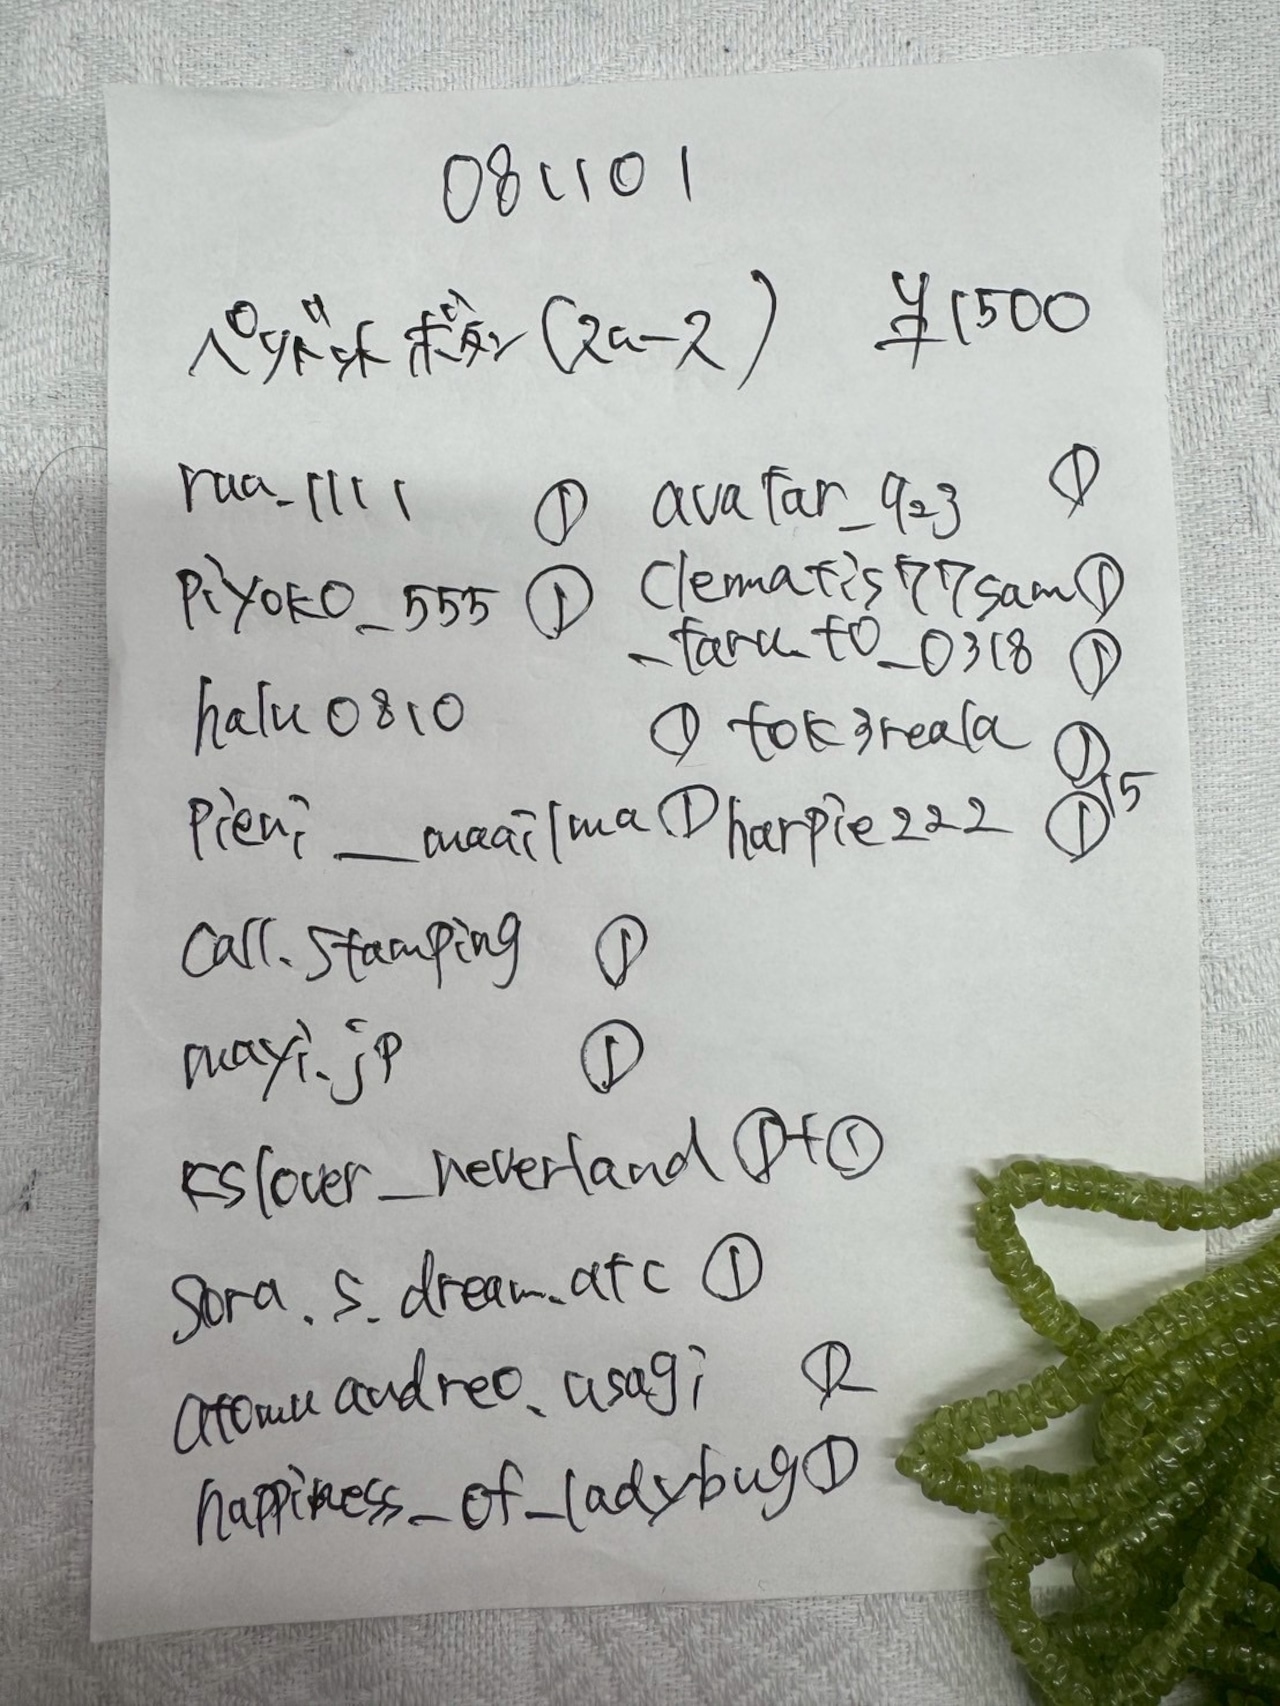 081101
ペリドット ボタン (2a-2) ¥1500
raa_1111 ①
piyoko_555 ①
halu0810 ①
pieni__maailma ①
call.stamping ①
mayi.jp ①
kslover_neverland ①+①
sora.s.dream.atc ①
atomuandreo.usagi ①
happiness_of_ladybug ①
avatar_923 ①
clematis77sam ①
_taru.to_0318 ①
tok3reala ①
harpie222 ① 15